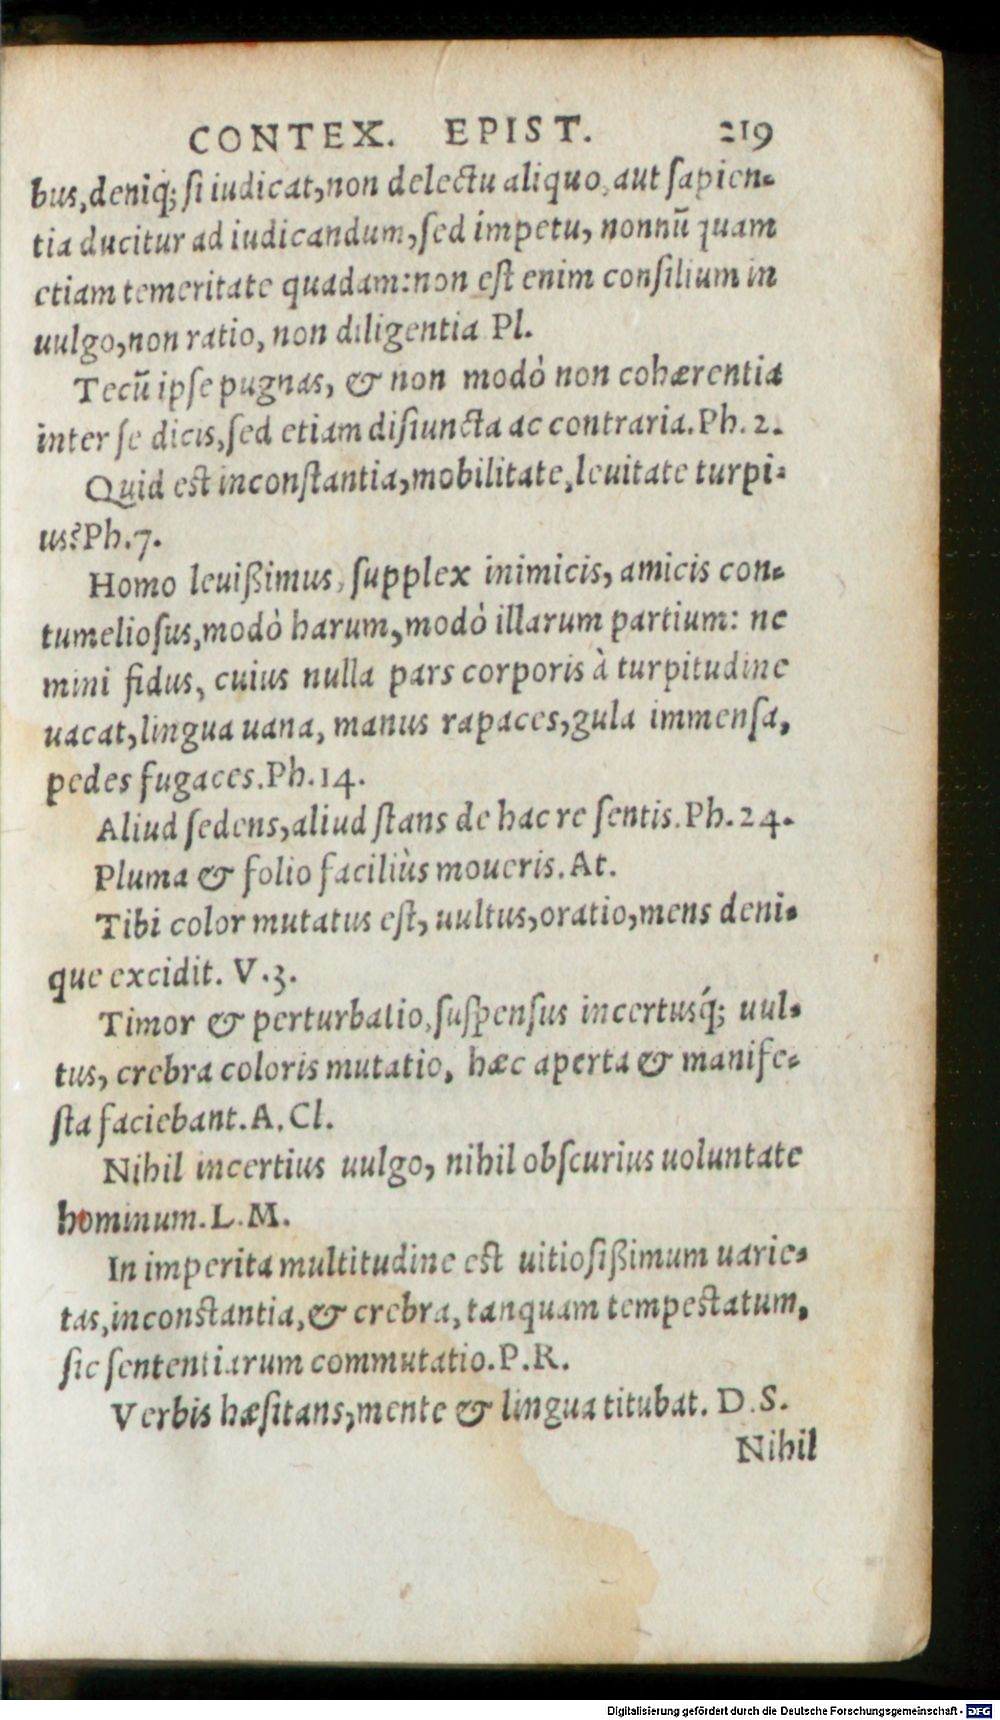 CONTEX. EPIST. 219
bus, deniq́; si iudicat, non delectu aliquo, aut sapien-
tia ducitur ad iudicandum, sed impetu, nonnũ quam
etiam temeritate quadam: non est enim consilium in
uulgo, non ratio, non diligentia Pl.
Tecũ ipse pugnas, & non modò non cohærentia
inter se dicis, sed etiam disiuncta ac contraria. Ph. 2.
Quid est inconstantia, mobilitate, leuitate turpi-
us? Ph. 7.
Homo leuißimus, supplex inimicis, amicis con-
tumeliosus, modò harum, modò illarum partium: ne
mini fidus, cuius nulla pars corporis à turpitudine
uacat, lingua uana, manus rapaces, gula immensa,
pedes fugaces. Ph. 14.
Aliud sedens, aliud stans de hac re sentis. Ph. 24.
Pluma & folio faciliùs moueris. At.
Tibi color mutatus est, uultus, oratio, mens deni-
que excidit. V. 3.
Timor & perturbatio, suspensus incertusq́; uul-
tus, crebra coloris mutatio, hæc aperta & manife-
sta faciebant. A. Cl.
Nihil incertius uulgo, nihil obscurius uoluntate
hominum. L. M.
In imperita multitudine est uitiosißimum uarie-
tas, inconstantia, & crebra, tanquam tempestatum,
sic sententiarum commutatio. P. R.
Verbis hæsitans, mente & lingua titubat. D. S.
Nihil
Digitalisierung gefördert durch die Deutsche Forschungsgemeinschaft - DFG